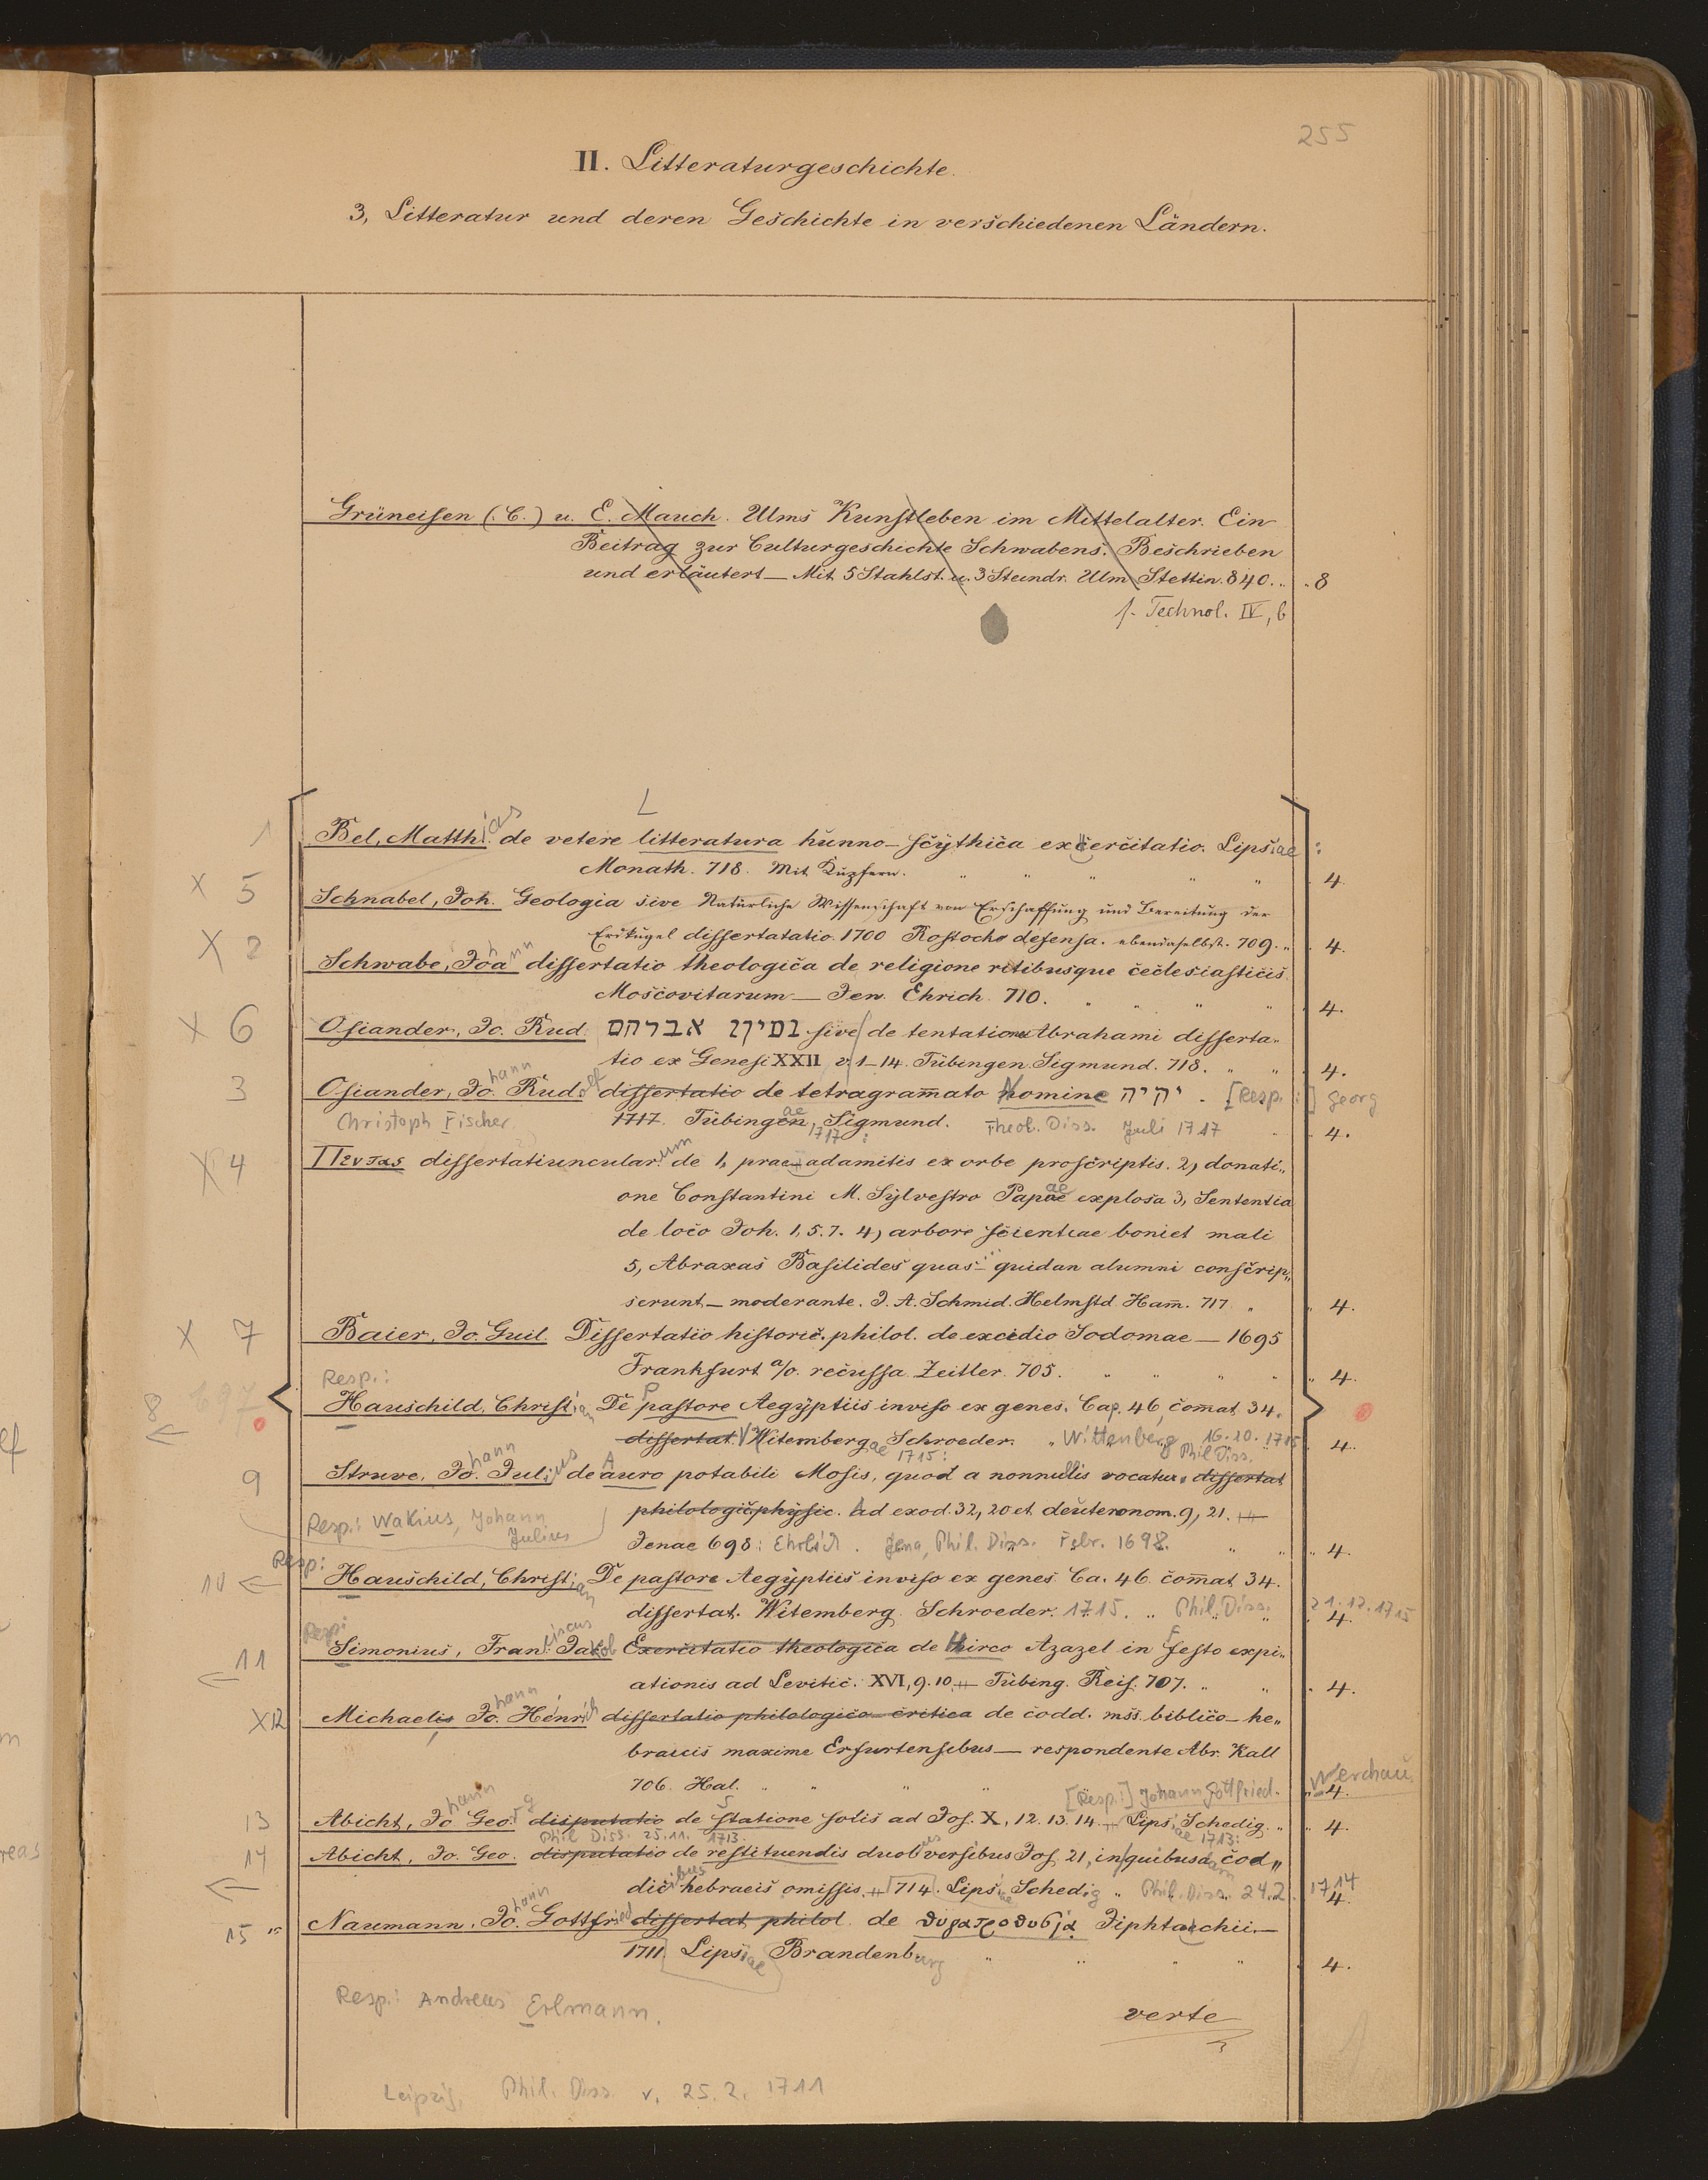 255
II. Litteraturgeschichte.
3, Litteratur und deren Geschichte in verschiedenen Ländern.
Grüneisen (C.) u. E. Mauch. Ulms Kunstleben im Mittelalter. Ein
Beitrag zur Culturgeschichte Schwabens. Beschrieben
und erläutert — Mit 5 Stahlst. u. 3 Steindr. Ulm Stettin. 840. „ „ 8
f. Technol. IV, b
L
1 Bel, Matthias de vetere litteratura hunno-scythica exercitatio. Lipsiae :
Monath. 718. Mit Kupfern. „ „ „ „ „ 4.
X 5 Schnabel, Joh. Geologia sive Natürliche Wissenschaft von Erschaffung und Bereitung der
Erdkugel dissertatatio. 1700 Rostocho defensa. ebendaselbst. 709. „ 4.
X 2 Schwabe, Johann dissertatio theologica de religione ritibusque ecclesiasticis
Moscovitarum — Jen. Ehrich. 710. „ „ „ „ 4.
X 6 Osiander, Jo. Rud. אברהם sive de tentatione Abrahami disserta„
tio ex Genesi XXII v. 1–14. Tübingen Sigmund. 718. „ „ 4.
3 Osiander, Johann Rudolf dissertatio de tetragram̄ato Nomine יהיה . [Resp.:] Georg
Christoph Fischer. 1717. Tübingae, 1717 : Sigmund. Theol. Diss. Juli 1717 „ 4.
X 4 Πεντας dissertatiuncularum de 1, prae-adamitis ex orbe proscriptis. 2, donati„
one Constantini M. Sylvestro Papae explosa 3, Sententia
de loco Joh. 1, 5. 7. 4, arbore scientiae boni et mali
5, Abraxas Basilides quas quidan alumni conscrip„
serunt — moderante. J. A. Schmid. Helmstd Ham̄. 717. „ „ 4.
X 7 Baier, Jo. Guil. Dissertatio historic. philol. de excidio Sodomae — 1695
Frankfurt a/o. recussa Zeitler. 705. „ „ „ „ „ 4.
Resp.:
8 697 Hauschild, Christian De Pastore Aegyptiis inviso ex genes. Cap. 46, com̄at 34.
← dissertat. Witembergae Schroeder. 1715: „ Wittenberg 16.10.1715 Phil Diss. „ 4.
9 Struve, Johann Julius de Auro potabili Mosis, quod a nonnullis vocatur dissertat
philologic physic. Ad exod. 32, 20 et deuteronom. 9, 21. —
Resp.: Wakius, Johann Julius
Jenae 698: Ehrlich. Jena, Phil. Diss. Febr. 1698. „ „ 4.
Resp:
10 ← Hauschild, Christian De pastore Aegyptiis inviso ex genes Ca. 46 com̄at 34.
dissertat. Witemberg Schroeder. 1715. „ Phil. Diss. „ 21.12.1715 4.
Resp:
11 Simonius, Franciscus Jakob Exercitatio theologica de Hirco Azazel in Festo expi„
← ationis ad Levitic. XVI, 9. 10. — Tübing. Reis. 707. „ „ 4.
X 12 Michaelis Johann Heinrich dissertatio philologico-critica de codd. mss. biblico-he„
braicis maxime Erfurtensibus — respondente Abr. Kall
706. Hal. „ „ „ „ [Resp.:] Johann Gottfried Werchau. „ 4.
13 Abicht, Johann Georg disputatio de Statione solis ad Jos. X, 12. 13. 14. — Lipsiae 1713: Schedig. „ „ 4.
Phil Diss. 25.11. 1713.
14 Abicht, Jo. Geo. disputatio de restituendis duobus versibus Jos. 21, in quibusdam cod„
← dicibus hebraeis omissis. — 714. Lipsiae Schedig „ Phil. Diss. 24.2. 1714 4.
15 Naumann, Johann Gottfried dissertat. philol. de θυγατροθυσίᾳ Jiphtachii. —
1711. Lipsiae Brandenburg „ „ „ „ „ 4.
Resp.: Andreas Erlmann.
verte
Leipzig, Phil. Diss. v. 25.2.1711